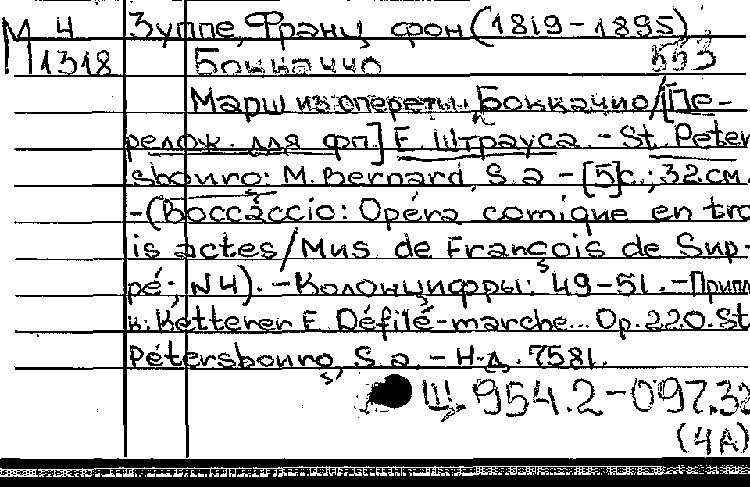 М 4 Зуппе, Франц фон (1819-1895)
1318 Боккаччо 553
Марш из оперетты Боккаччо/[Пе-
релож. для фп.] Е. Штрауса. - St. Peter
sbourg: M. Bernard, S. a - [5]с.; 32 см.
-(Boccaccio: Opéra comique en tro
is actes/Mus de François de Sup-
pé; N4). - Колонцифры: 49-51. - Припл
к: Ketterer E. Défilé-marche... Op. 220. St
Pétersbourg, S. a. - Н.д. 7581.
Щ. 954.2-097.32
(4А)